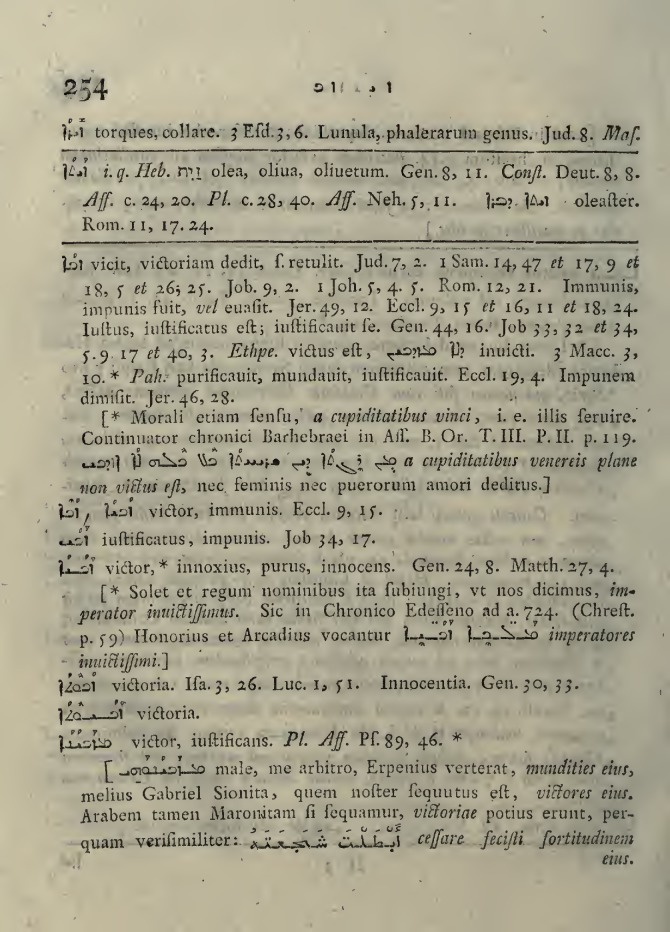 254
torques, collare. 3 Eſd. 3, 6. Lunula, phalerarum genus. Jud. 8. Maſ.
i. q. Heb. זית olea, oliua, oliuetum. Gen. 8, 11. Conſt. Deut. 8, 8.
Aff. c. 24, 20. Pl. c. 28, 40. Aff. Neh. 5, 11. oleaſter.
Rom. 11, 17. 24.
ܙܟܐ vicit, victoriam dedit, ſ. retulit. Jud. 7, 2. 1 Sam. 14, 47 et 17, 9 et
18, 5 et 26; 25. Job. 9, 2. 1 Joh. 5, 4. 5. Rom. 12, 21. Immunis,
impunis fuit, vel euaſit. Jer. 49, 12. Eccl. 9, 15 et 16, 11 et 18, 24.
Iuſtus, iuſtificatus eſt; iuſtificauit ſe. Gen. 44, 16. Job 33, 32 et 34,
5. 9. 17 et 40, 3. Ethpe. victus eſt, inuicti. 3 Macc. 3,
10. * Pah. purificauit, mundauit, iuſtificauit. Eccl. 19, 4. Impunem
dimiſit. Jer. 46, 28.
[* Morali etiam ſenſu, a cupiditatibus vinci, i. e. illis ſeruire.
Continuator chronici Barhebraei in Aſſ. B. Or. T. III. P. II. p. 119.
a cupiditatibus venereis plane
non victus eſt, nec feminis nec puerorum amori deditus.]
victor, immunis. Eccl. 9, 15.
iuſtificatus, impunis. Job 34, 17.
victor, * innoxius, purus, innocens. Gen. 24, 8. Matth. 27, 4.
[* Solet et regum nominibus ita ſubiungi, vt nos dicimus, im-
perator inuictiſſimus. Sic in Chronico Edeſſeno ad a. 724. (Chreſt.
p. 59) Honorius et Arcadius vocantur imperatores
inuictiſſimi.]
ܙܟܘܬܐ victoria. Iſa. 3, 26. Luc. 1, 51. Innocentia. Gen. 30, 33.
victoria.
victor, iuſtificans. Pl. Aff. Pſ. 89, 46. *
[ male, me arbitro, Erpenius verterat, mundities eius,
melius Gabriel Sionita, quem noſter ſequutus eſt, victores eius.
Arabem tamen Maronitam ſi ſequamur, victoriae potius erunt, per-
quam veriſimiliter: ceſſare feciſti fortitudinem
eius.